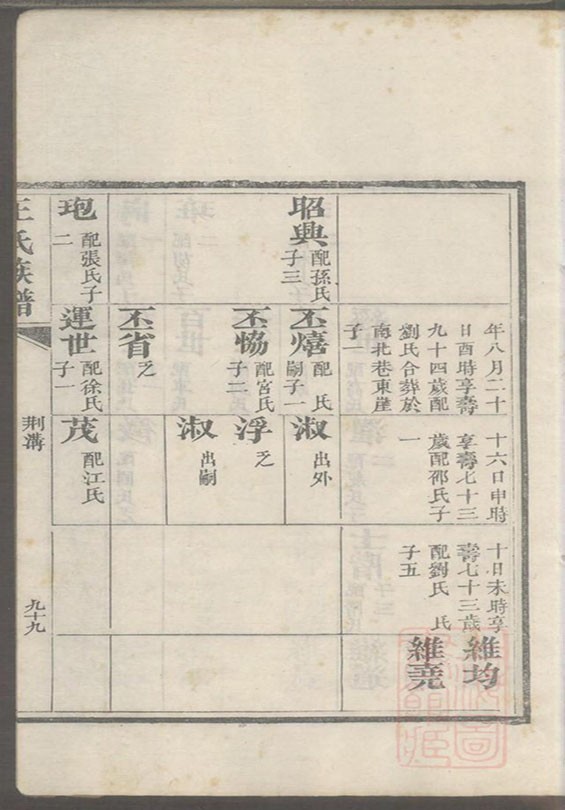 年八月二十
日酉時享壽
九十四歲配
劉氏合葬於
南北巷東崖
子一
十六日申時
享壽七十三
歲配邵氏子
一
十日未時享
壽七十三歲
配劉氏 氏
子五
維均
維堯
昭興
配孫氏
子三
丕熺
配 氏
嗣子一
淑
出外
丕協
配宮氏
子二
浮
之
淑
出嗣
丕省
之
玸
配張氏子
二
運世
配徐氏
子一
茂
配江氏
王氏族譜
荆溝
九十九